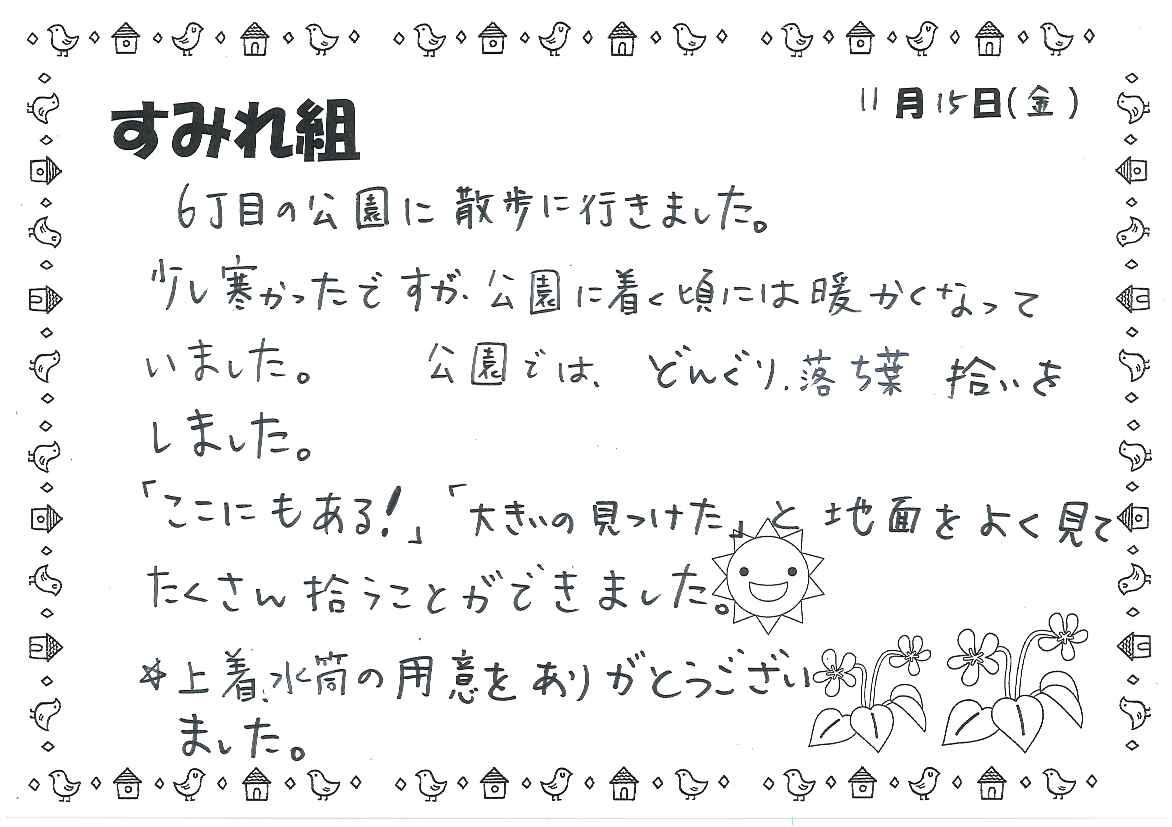 11月15日(金)
すみれ組
6丁目の公園に散歩に行きました。
少し寒かったですが、公園に着く頃には暖かくなって
いました。 公園では、どんぐり、落ち葉 拾いを
しました。
「ここにもある!」「大きいの見つけた」と 地面をよく見て
たくさん拾うことができました。
☆上着、水筒の用意をありがとうござい
ました。